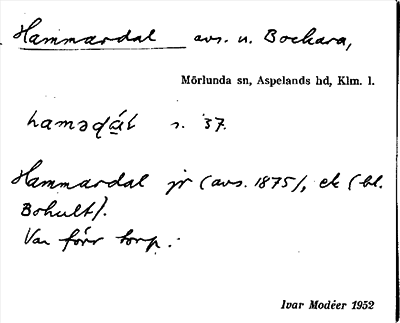 Hammardal avs. u. Bockara,
Mörlunda sn, Aspelands hd, Klm. l.
hamədá̱l s. 37.
Hammardal jr (avs. 1875), ek (bl.
Bohult).
Var förr torp.
Ivar Modéer 1952